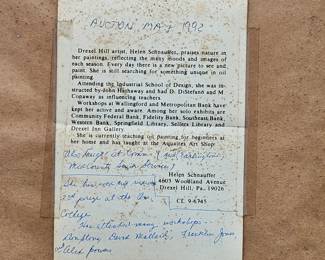 AUCTION MAY 1992
Drexel Hill artist, Helen Schnauffer, praises nature in
her paintings, reflecting the many moods and images of
each season. Every day there is a new picture to see and
paint. She is still searching for something unique in oil
painting.
Attending the Industrial School of Design, she was in-
structed by John Hathaway and had D. DiStefand and M
Conaway as influencing teachers.
Workshops at Wallingford and Metropolitan Bank have
kept her active and aware. Among her solo exhibits are
Community Federal Bank, Fidelity Bank, Southeast Bank,
Western Bank, Springfield Library, Sellers Library and
Drexel Inn Gallery.
She is currently teaching oil painting for beginners at
her home and has taught at the Aquatex Art Shop.
Also taught at Comm.
Senior Service)
Helen Schnauffer
4603 Woodland Avenue
Drexel Hill, Pa., 19026
CL 9-6745
She has won
2nd prize at the
College
She attended many workshops -
David
Franklin Jones
Alex Powers